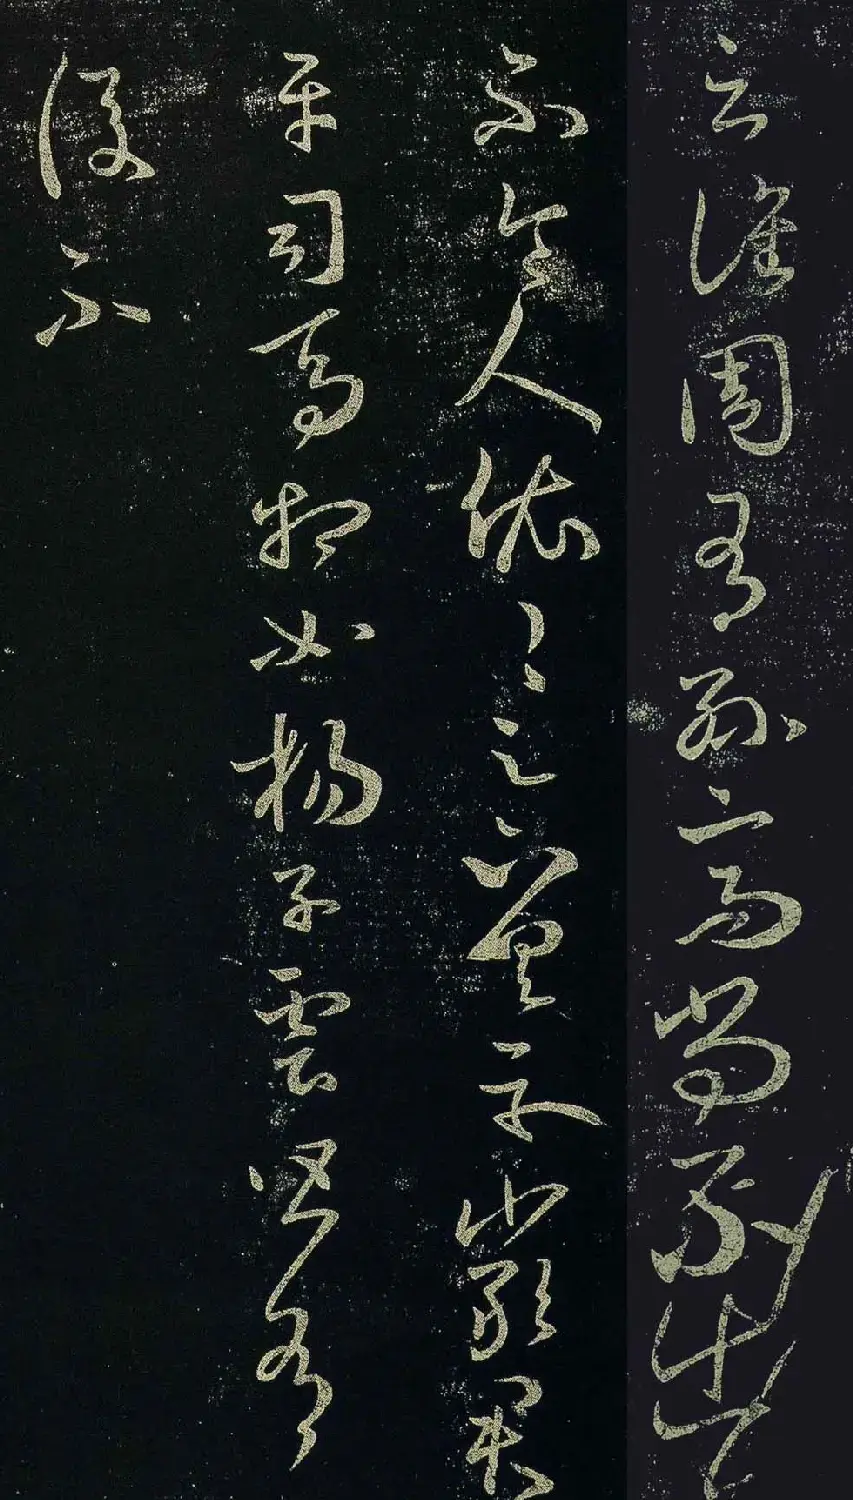 云譙周有孫高尚不出
不令人依々足下具示嚴君
平司馬相如楊子雲皆有
後不